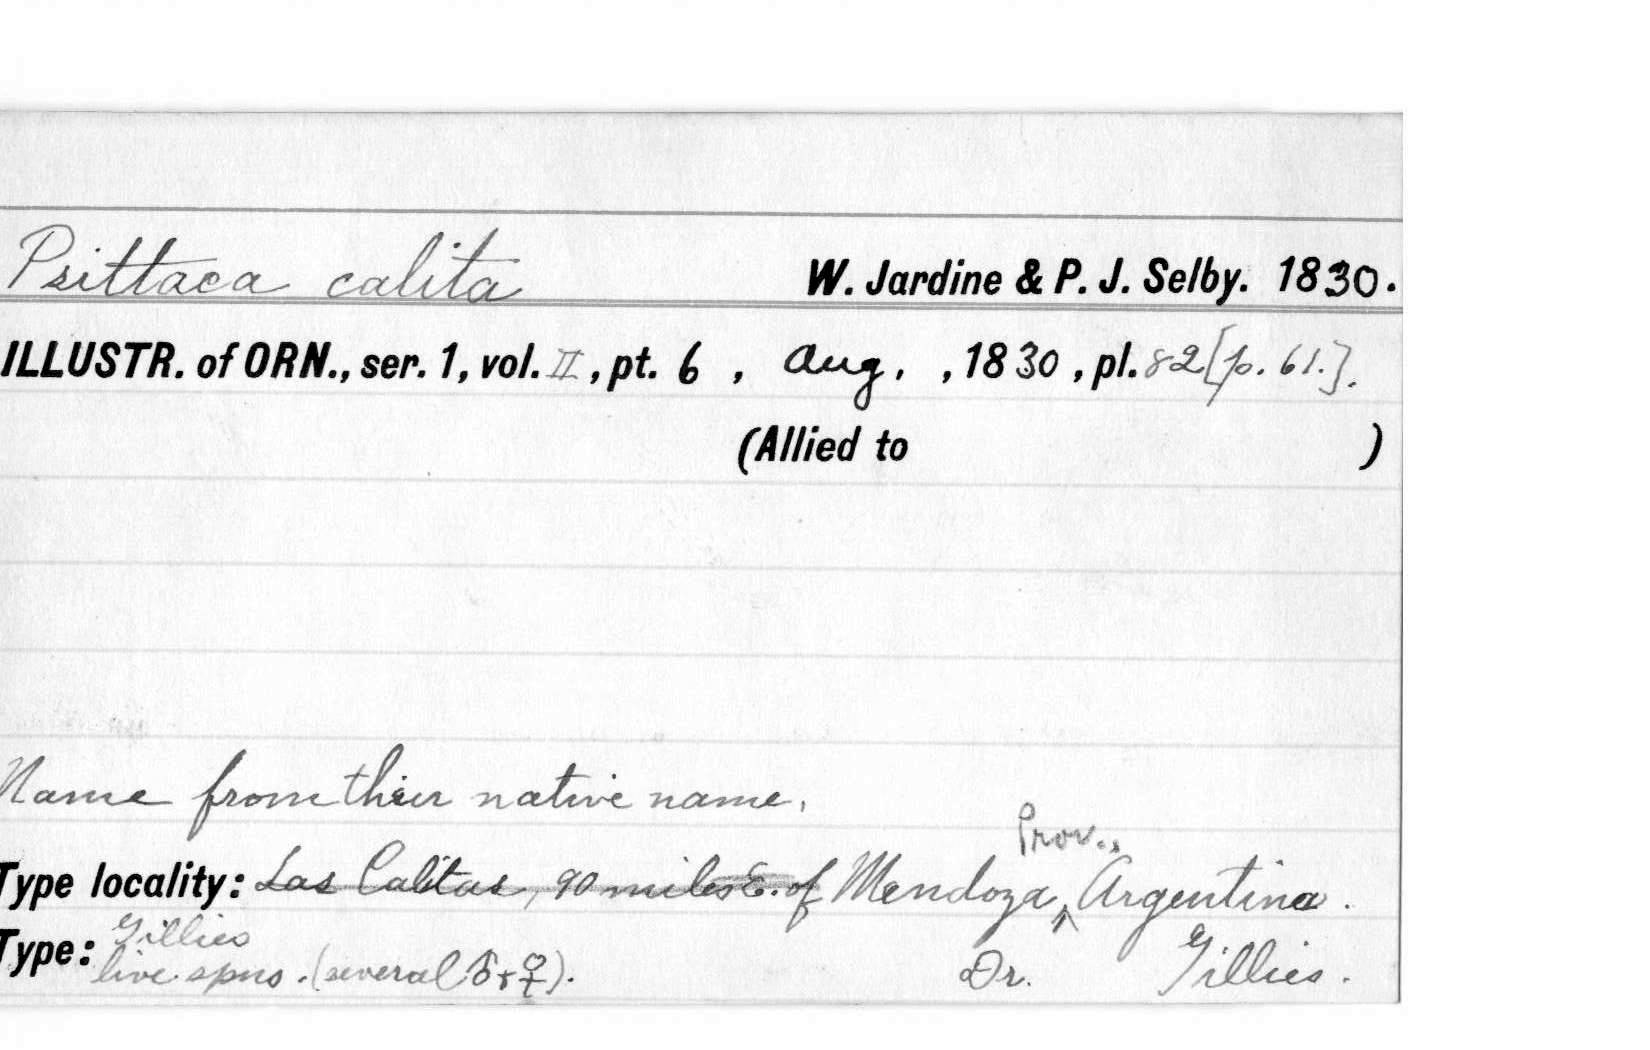 Psittaca calita W. Jardine & P. J. Selby. 1830.
ILLUSTR. of ORN., ser. 1, vol. II, pt. 6, Aug., 1830, pl. 82 [p. 61.].
(Allied to )
Name from their native name.
Prov.,
Type locality: Las Calitas, 90 miles E. of Mendoza, Argentina.
Gillies
Type: live spns. (several ♂ + ♀). Dr. Gillies.